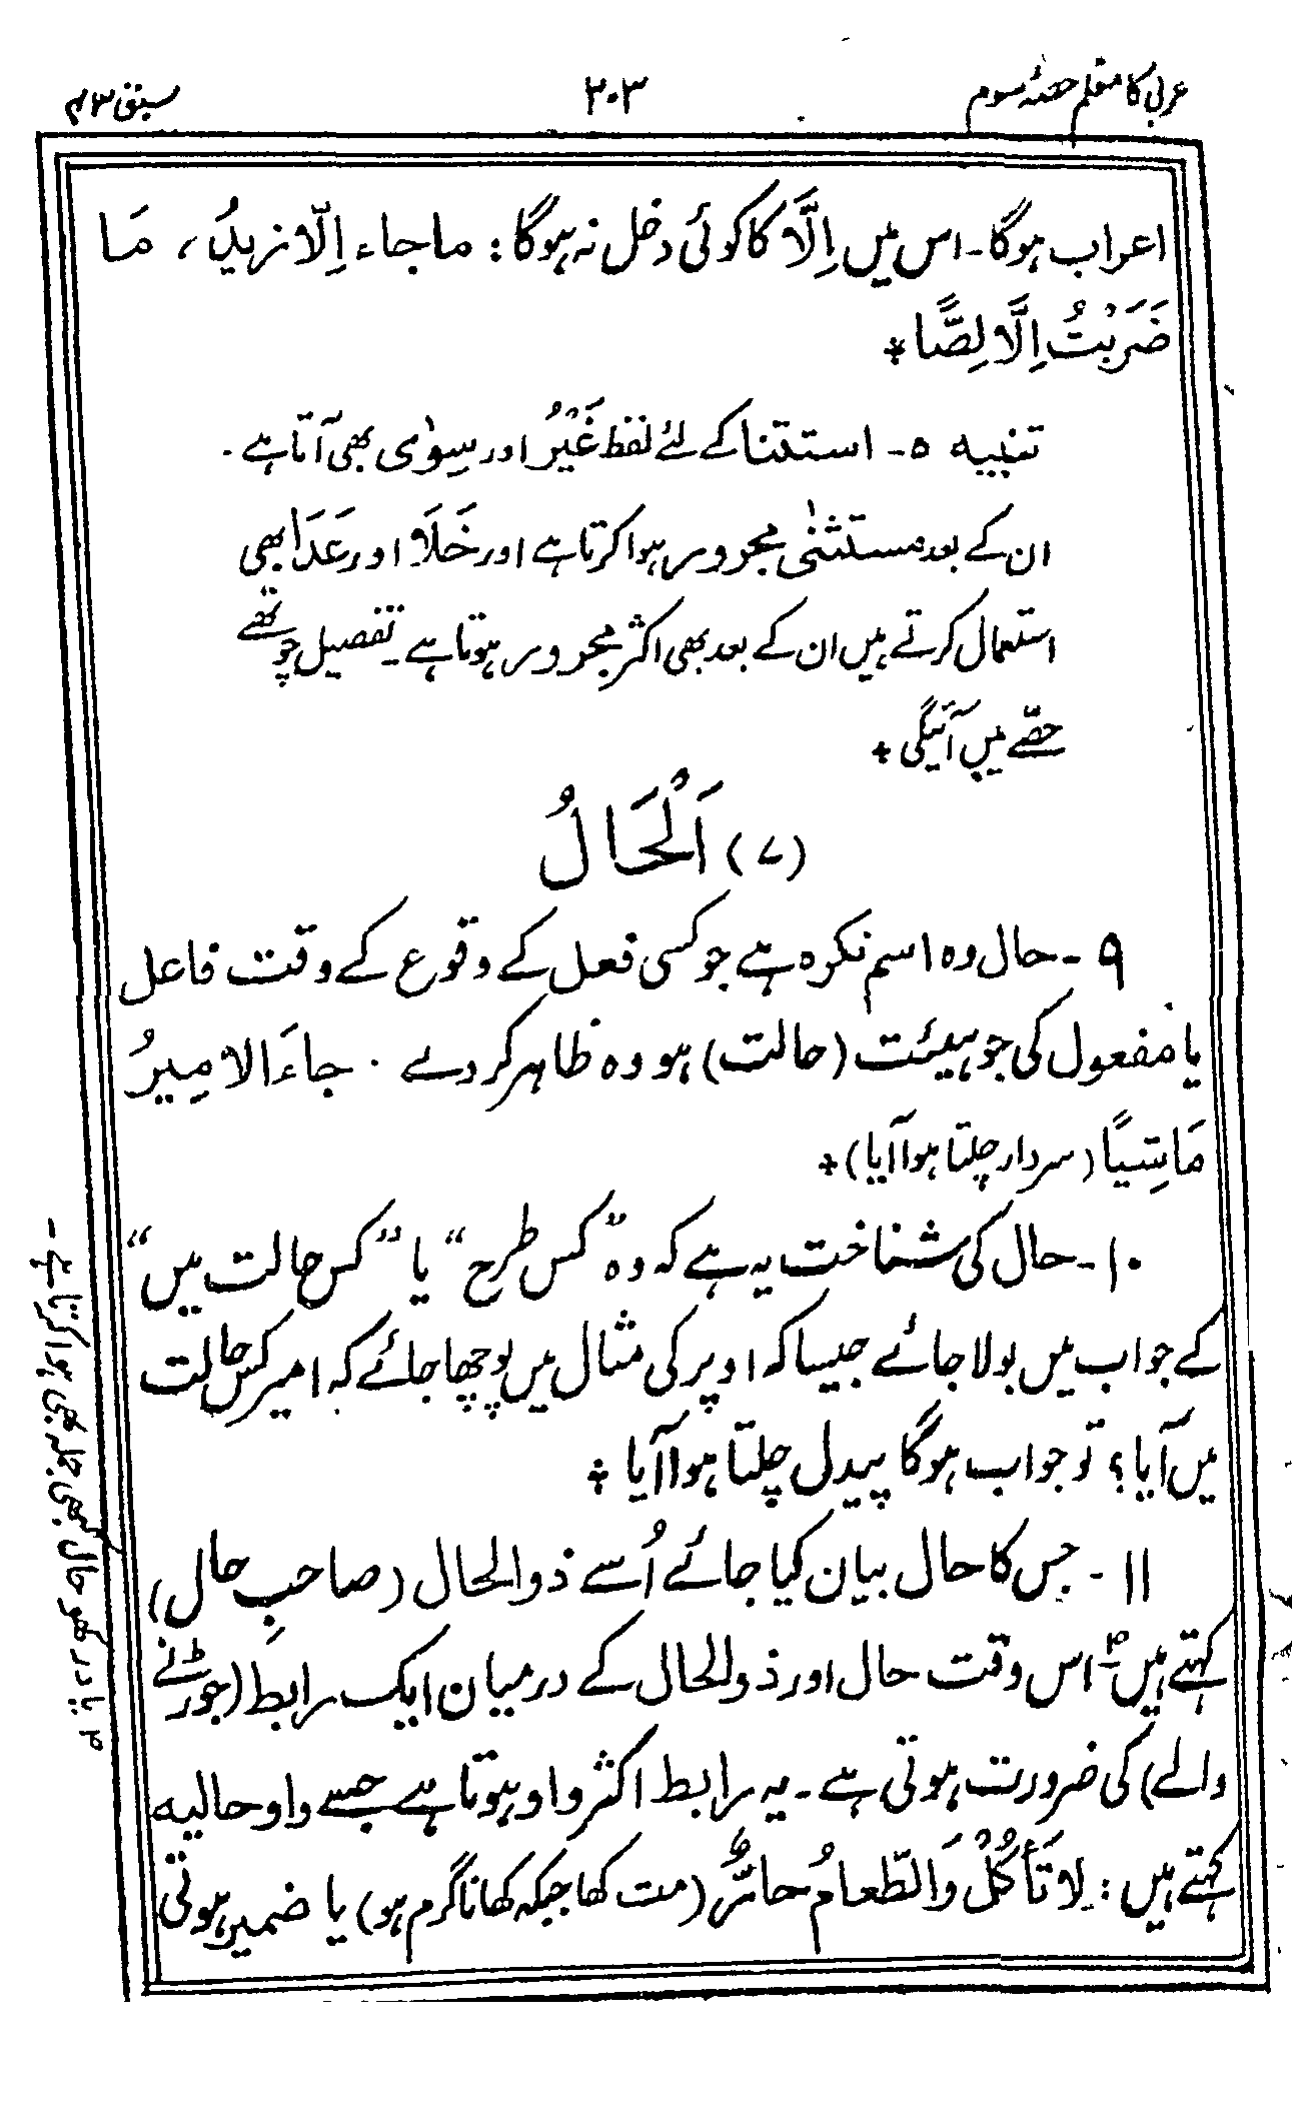 عربی کا معلم حصّۂ سوم
۳۰۳
سبق ۴۳
اعراب ہوگا۔ اس میں اِلَّا کا کوئی دخل نہ ہوگا: ماجاء اِلّا زیدٌ، مَا
ضَرَبْتُ اِلَّا لِصًّا ٭
تنبیہ ۵۔ استثنا کے لئے لفظ غَیْرُ اور سِوٰی بھی آتا ہے۔
ان کے بعد مستثنٰی مجرور ہوا کرتا ہے اور خَلَا اور عَدَا بھی
استعمال کرتے ہیں ان کے بعد بھی اکثر مجرور ہوتا ہے۔ تفصیل چوتھے
حصّے میں آئیگی ٭
(۷) اَلْحَالُ
۹۔ حال وہ اسم نکرہ ہے جو کسی فعل کے وقوع کے وقت فاعل
یا مفعول کی جو ہیئت (حالت) ہو وہ ظاہر کر دے۔ جاءَ الامِیرُ
مَاشِیًا (سردار چلتا ہوا آیا) ٭
۱۰۔ حال کی شناخت یہ ہے کہ وہ ”کس طرح“ یا ”کس حالت میں“
کے جواب میں بولا جائے جیسا کہ اوپر کی مثال میں پوچھا جائے کہ امیر کس حالت
میں آیا؟ تو جواب ہوگا پیدل چلتا ہوا آیا ٭
۱۱۔ جس کا حال بیان کیا جائے اُسے ذوالحال (صاحبِ حال)
کہتے ہیں۳ اس وقت حال اور ذوالحال کے درمیان ایک رابط (جوڑنے
والے) کی ضرورت ہوتی ہے۔ یہ رابط اکثر واو ہوتا ہے جسے واو حالیہ
کہتے ہیں: لا تَأکُلْ وَالطّعامُ حارٌّ (مت کھا جبکہ کھانا گرم ہو) یا ضمیر ہوتی
۳ یاد رکھو حال کبھی جملہ بھی ہوا کرتا ہے۔